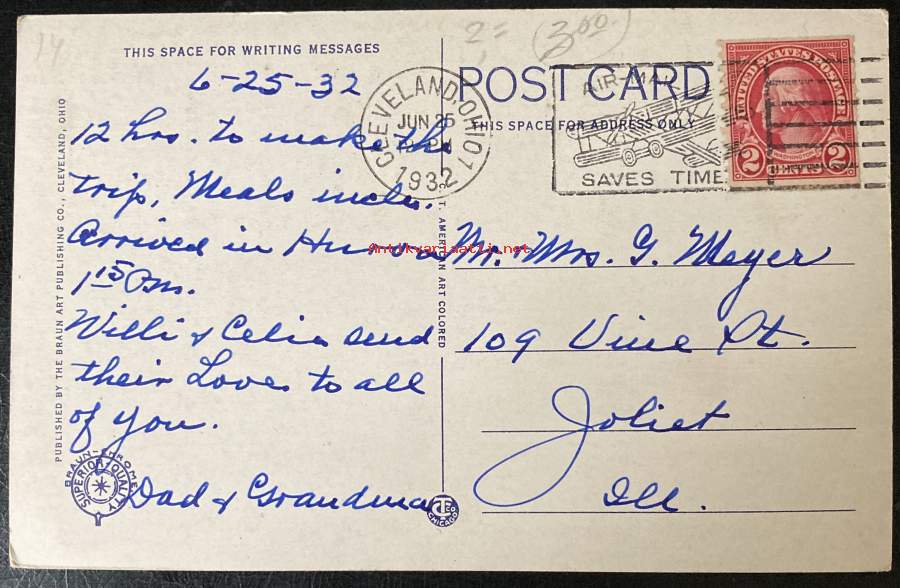 14
2=
3.00
THIS SPACE FOR WRITING MESSAGES
6-25-32
12 hrs. to make the
trip, Meals inclu.
Arrived in
1 15 Pm.
Willi & Celia send
their Love to all
of you.
Dad & Grandma
PUBLISHED BY THE BRAUN ART PUBLISHING CO., CLEVELAND, OHIO
BRAUN-CHROME
SUPERIOR QUALITY
C.T. AMERICAN ART COLORED
CT CO
CHICAGO
POST CARD
THIS SPACE FOR ADDRESS ONLY
CLEVELAND, OHIO 1
JUN 25
PM
1932
AIR-MAIL
SAVES TIME
UNITED STATES POSTAGE
WASHINGTON
2 CENTS 2
Mr. Mrs. G. Meyer
109 Vine St.
Joliet
Ill.
Antikvariaatti.net